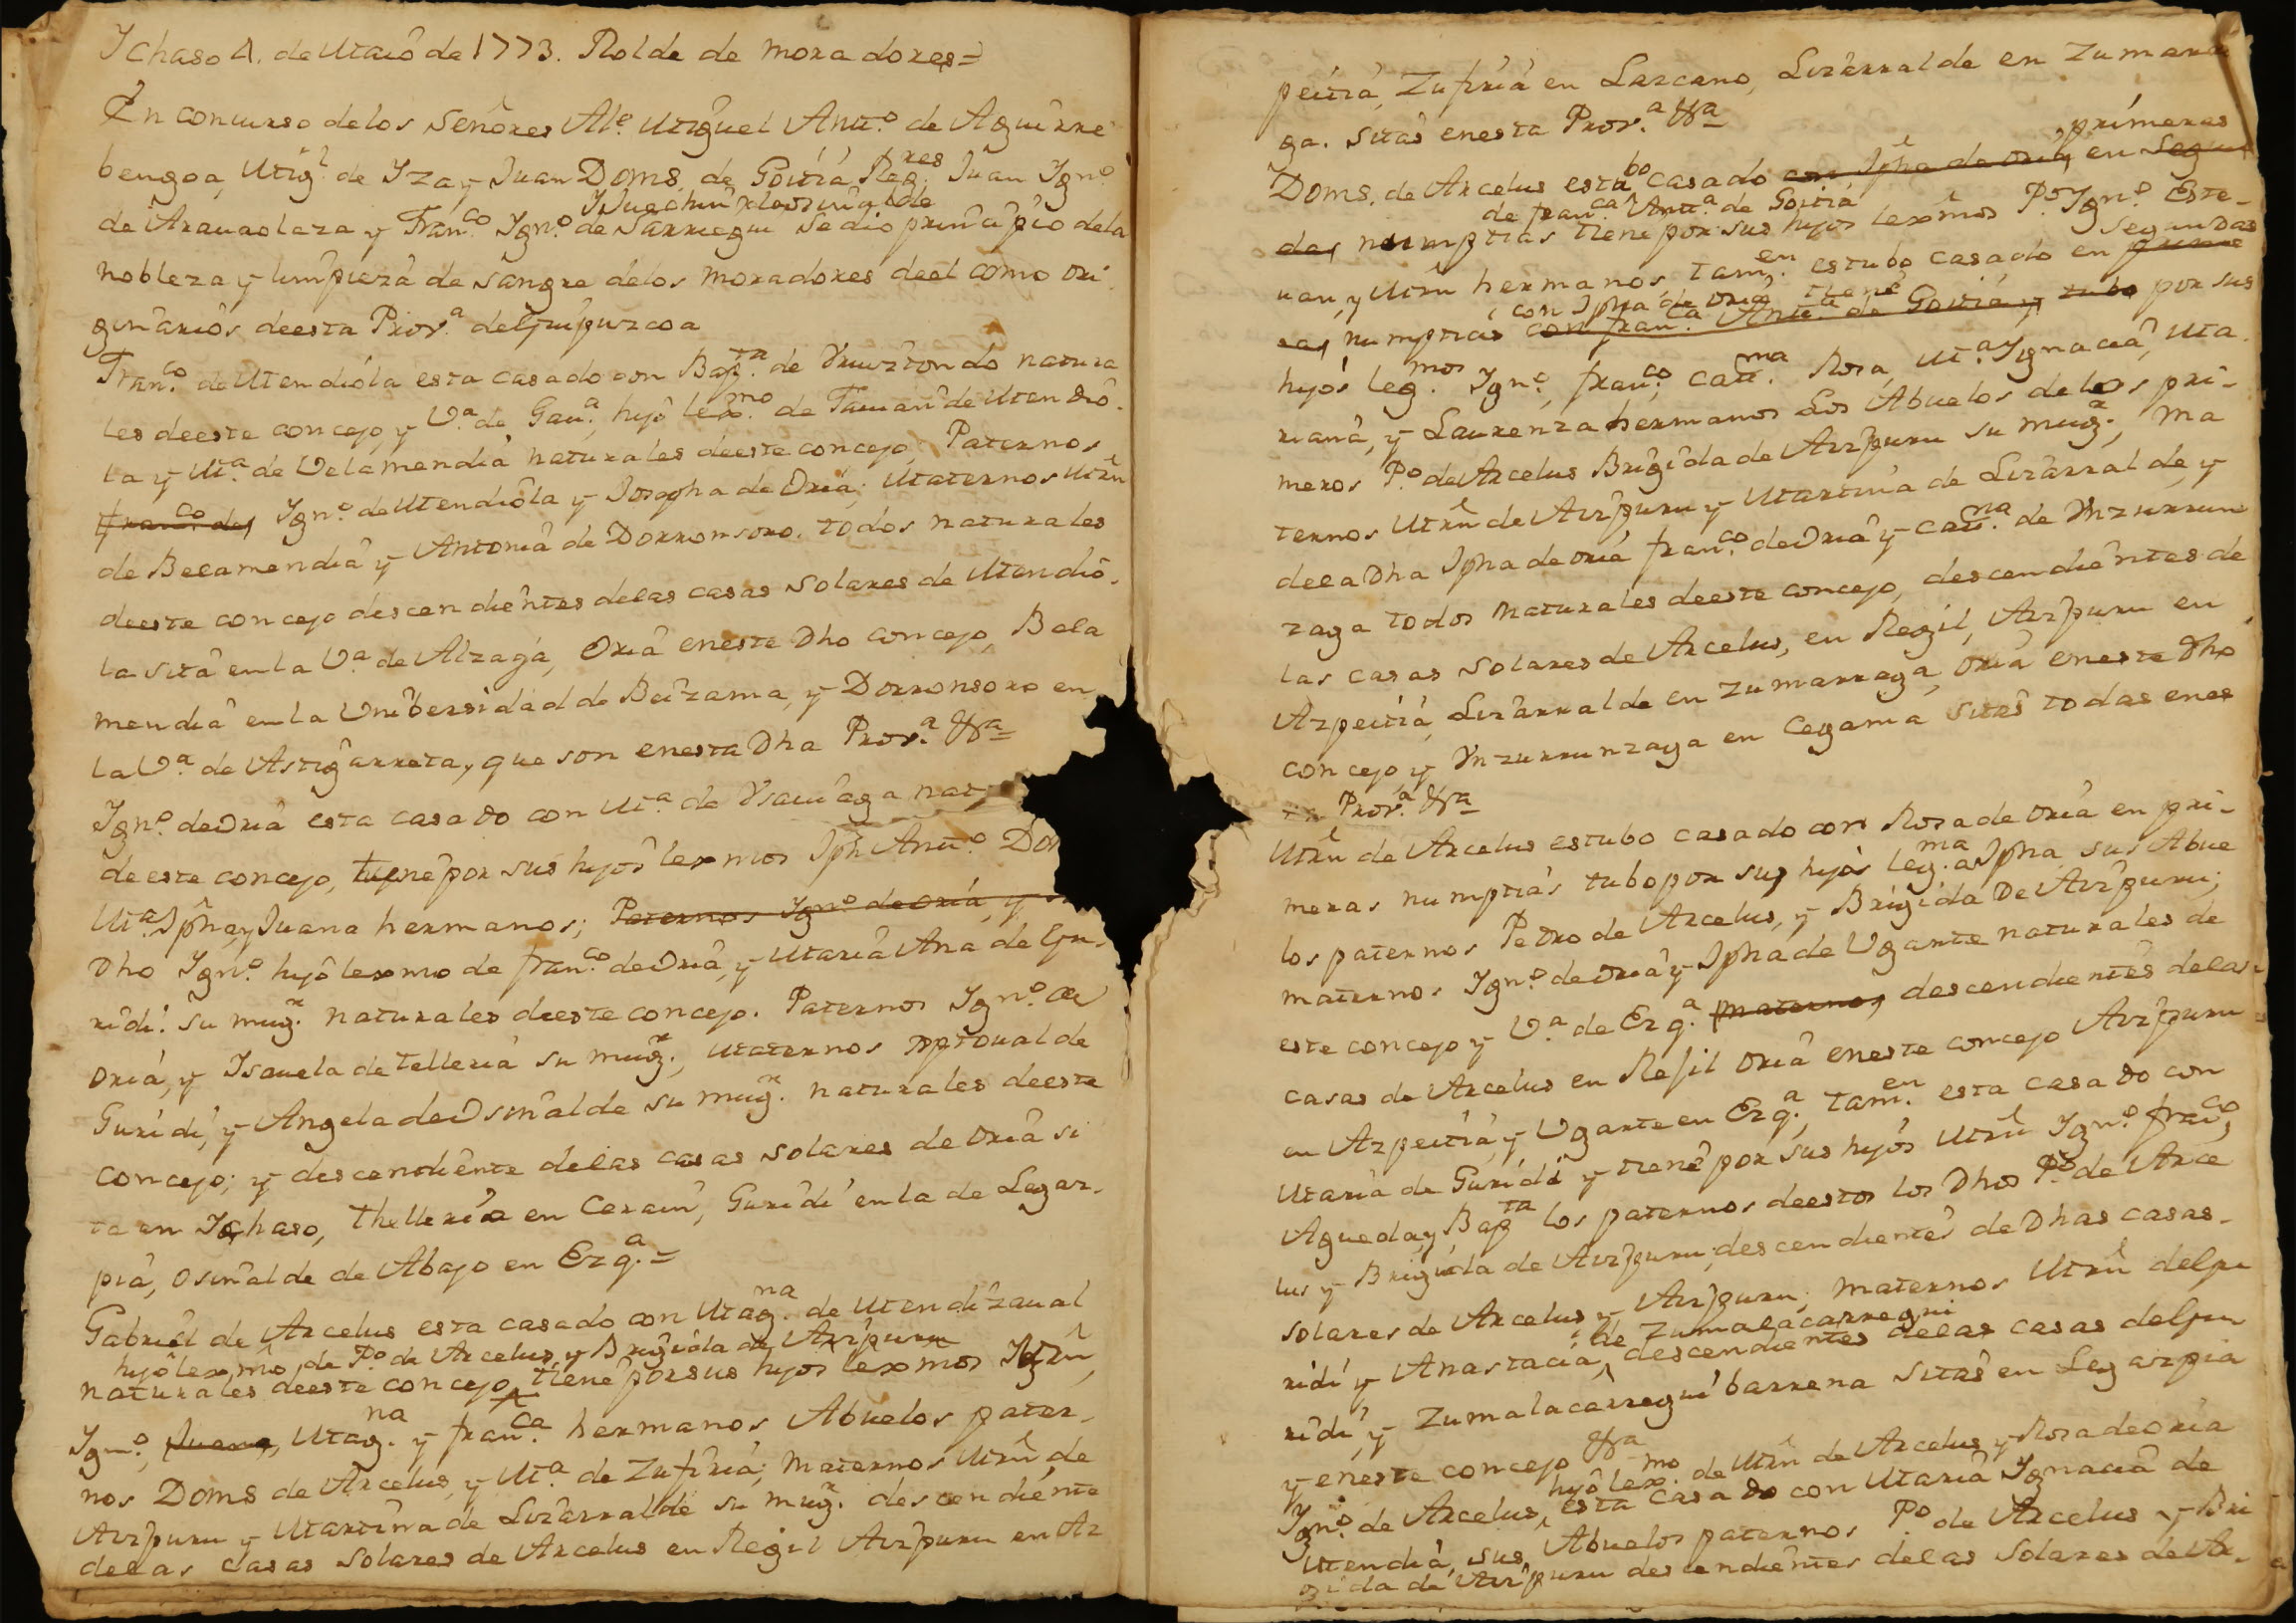 Ichaso 4. de Maio de 1773. Rolde de moradores=
En concurso delos Señores Ale Miguel Antt.o de Aguirre
bengoa, Mig.l de Yza y Juan Doms. de Goitia Reg.res Juan Ygn.o
de Araucolaza y Fran.co Ygn.o de Sarriegui se dio principio dela
nobleza y limpieza de sangre delos moradores deel como ori-
ginarios deesta Prov.a de Guipuzcoa
Fran.co de Mendiola esta casado con Bap.ta de Yruiztondo natura
les deeste concejo, y V.a de Gau.a, hijo lex.mo de Damian de Mendio-
la y M.a de Velamendia naturales deeste concejo; Paternos
fran.co de, Ygn.o de Mendiola y Josepha de Oria; Maternos Mrn
de Belamendia y Antonia de Dorronsoro. todos naturales
deeste concejo descendientes delas casas solares de Mendio-
la sita en la V.a de Alzaga, Oria eneste Dho concejo, Bela
mendia en la Unibersidad de Beizama, y Dorronsoro en
la V.a de Astigarreta, que son enesta Dha Prov.a &a=
Ygn.o de Oria esta casado con M.a de Ysauaga nat
deeste concejo, tiene por sus hijos lexmos Jph Antt.o Dom
M.a Jpha, y Juana hermanos; Paternos Ygn.o de oria, y
Dho Ygn.o hijo lexmo de fran.co de Oria, y Maria Ana de Gu-
ridi. su mug.r naturales deeste concejo. Paternos Ygn.o de
Oria, y Ysauela de Telleria su mug.r; Maternos xptoual de
Guridi, y Angela de Osinalde su mug.r naturales deeste
concejo; y descendiente delas casas solares de Oria si
ta en Ychaso, Thelleria en Cerain, Guridi en la de Legaz-
pia, Osinalde de Abajo en Ezq.a=
Gabriel de Arcelus esta casado con Mag.na de Mendizaual
hijo lexmo, de P.o de Arcelus, y Brigida de Aizpuru
naturales deeste concejo, tiene por sus hijos lexmos Mrn,
Ygn.o, Juana, Mag.na y fran.ca hermanos Abuelos pater-
nos Doms de Arcelus, y M.a de Zufiria; Maternos Mrn de
Aizpuru y Martina de Lizarralde su mug.r descendiente
delas casas solares de Arcelus en Regil Aizpuru en Az
peitia, Zufiria en Lazcano, Lizarralde en Zumarra
ga. sitas enesta Prov.a &a
primeras
Doms. de Arcelus estubo casado con Jpha de oria, en Segun
de fran.ca Antt.a de Goitia
das numptias tiene por sus hijos lexmos P.o Ygn.o Este-
segundas
uan, y Mrn hermanos, tam.en estubo casado en prime
con Jpha de Oria tiene
ras numptias con fran.ca Antt.a de Goitia y tubo por sus
hijos leg.mos Ygn.o, fran.co, Catt.na Rosa, M.a Ygnacia, Ma
riana, y Laurenza hermanos Los Abuelos delos pri-
meros P.o de Arcelus Brigida de Aizpuru su mug.r, Ma
ternos Mrn de Aizpuru y Martina de Lizarralde, y
dela Dha Jpha de oria fran.co de Oria y Catt.na de Ynzurrun
zaga todos naturales deeste concejo, descendientes de
las casas solares de Arcelus, en Regil, Aizpuru en
Azpeitia, Lizarralde en Zumarraga, Oria eneste Dho
concejo, y Ynzurrunzaga en Cegama sitas todas enes
ta Prov.a &a
Mrn de Arcelus estubo casado con Rosa de Oria en pri-
meras numptias tubo por su, hijos leg.ma a Jpha, sus Abue
los paternos Pedro de Arcelus, y Brigida De Aizpuru;
maternos Ygn.o de Oria y Jpha de Ugarte naturales de
este concejo y V.a de Ezq.a (maternos, descendientes delas
casas de Arcelus en Rejil Oria eneste concejo Aizpuru
en Azpeitia, y Ugarte en Ezq.a; tam.en esta casado con
Maria de Guridi y tiene por sus hijos Mrn Ygn.o fran.co,
Agueda, y Bap.ta los paternos deestos los Dhos P.o de Arce
lus y Brigida de Aizpuru; descendientes de Dhas casas-
solares de Arcelus y Aizpuru; Maternos Mrn de Gu
de Zumalacarregui
ridi y Anastacia, descendientes delas casas de Gu
ridi, y Zumalacarregui barrena sitas en Legazpia
y eneste concejo &a
hijo lex.mo de Mrn de Arcelus y Rosa de oria
Ygn.o de Arcelus, esta casado con Maria Ygnacia de
Mendia, sus, Abuelos paternos P.o de Arcelus y Bri
gida de Aizpuru descendientes delas Solares de Ar-